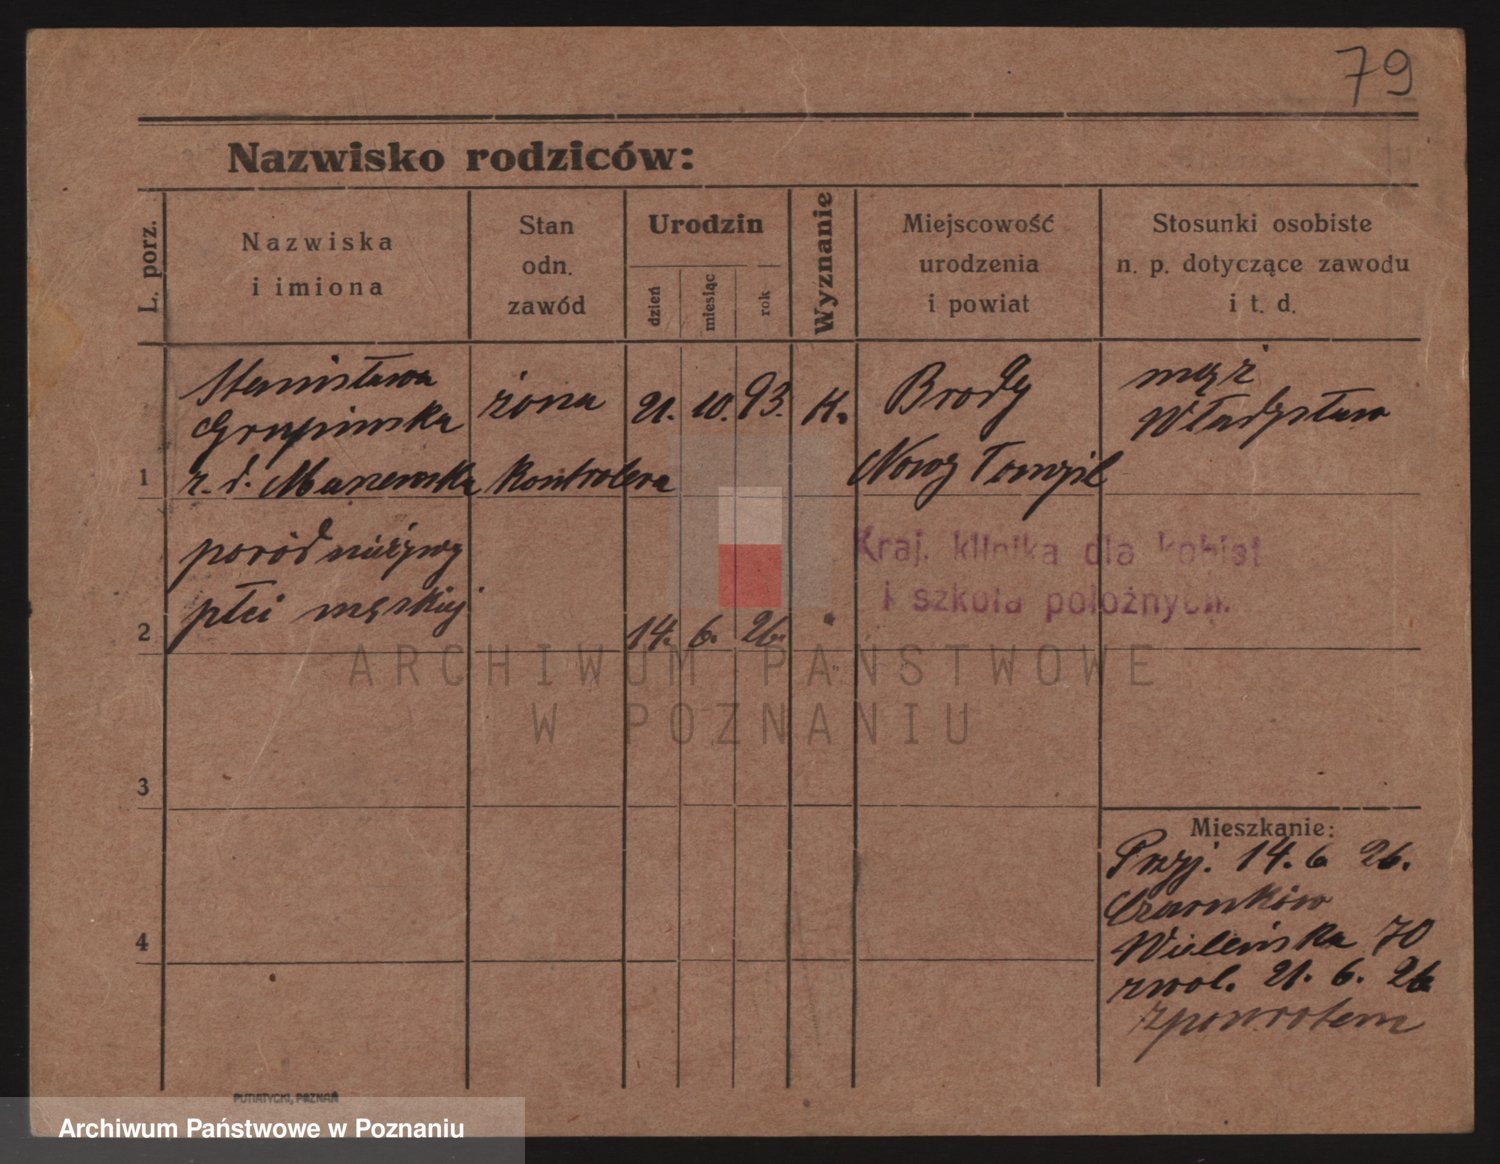 79
Nazwisko rodziców:
L. porz.
Nazwiska
i imiona
Stan
odn.
zawód
Urodzin
dzień
miesiąc
rok
Wyznanie
Miejscowość
urodzenia
i powiat
Stosunki osobiste
n. p. dotyczące zawodu
i t. d.
1
Stanisława
Grupinska
z. d.
żona
kontrolera
21. 10. 93.
Brody
Nowy Tomyśl
mąż
Władysław
2
poród nieżywy
płci męskiej
14. 6. 26.
Kraj. klinika dla kobiet
i szkoła położnych.
ARCHIWUM PAŃSTWOWE
W POZNANIU
3
4
Mieszkanie:
Przyj. 14. 6 26.
Czarnków
Wieleńska 70
zwol. 21. 6. 26
zpowrotem
PUTIATYCKI, POZNAŃ
Archiwum Państwowe w Poznaniu